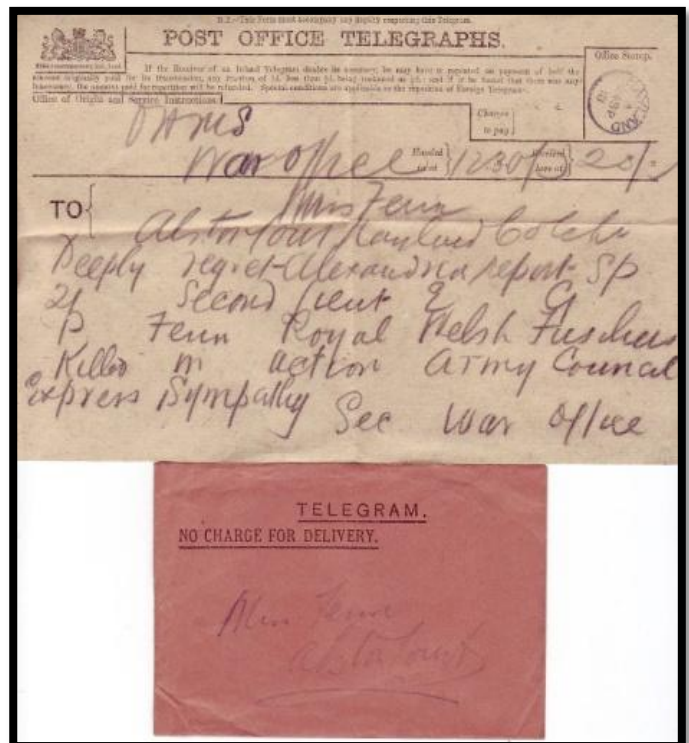 N.B.—This Form must accompany any inquiry respecting this Telegram.
POST OFFICE TELEGRAPHS.
If the Receiver of an Inland Telegram doubts its accuracy, he may have it repeated on payment of half the
amount originally paid for its transmission, any fraction of 1d. less than ½d. being reckoned as ½d.; and if it be found that there was any
inaccuracy, the amount paid for repetition will be refunded. Special conditions are applicable to the repetition of Foreign Telegrams.
Office Stamp.
Office of Origin and Service Instructions.
Charges
to pay
OHMS
War Office
Handed
in at
1230
Received
here at
TO
Miss Fenn
Alston Court Nayland Colch
Deeply regret Alexandria report SP
21 Second Lieut E G
P Fenn Royal Welsh Fusiliers
Killed in action Army Council
express sympathy
Sec War Office
TELEGRAM.
NO CHARGE FOR DELIVERY.
Miss Fenn
Alston Court